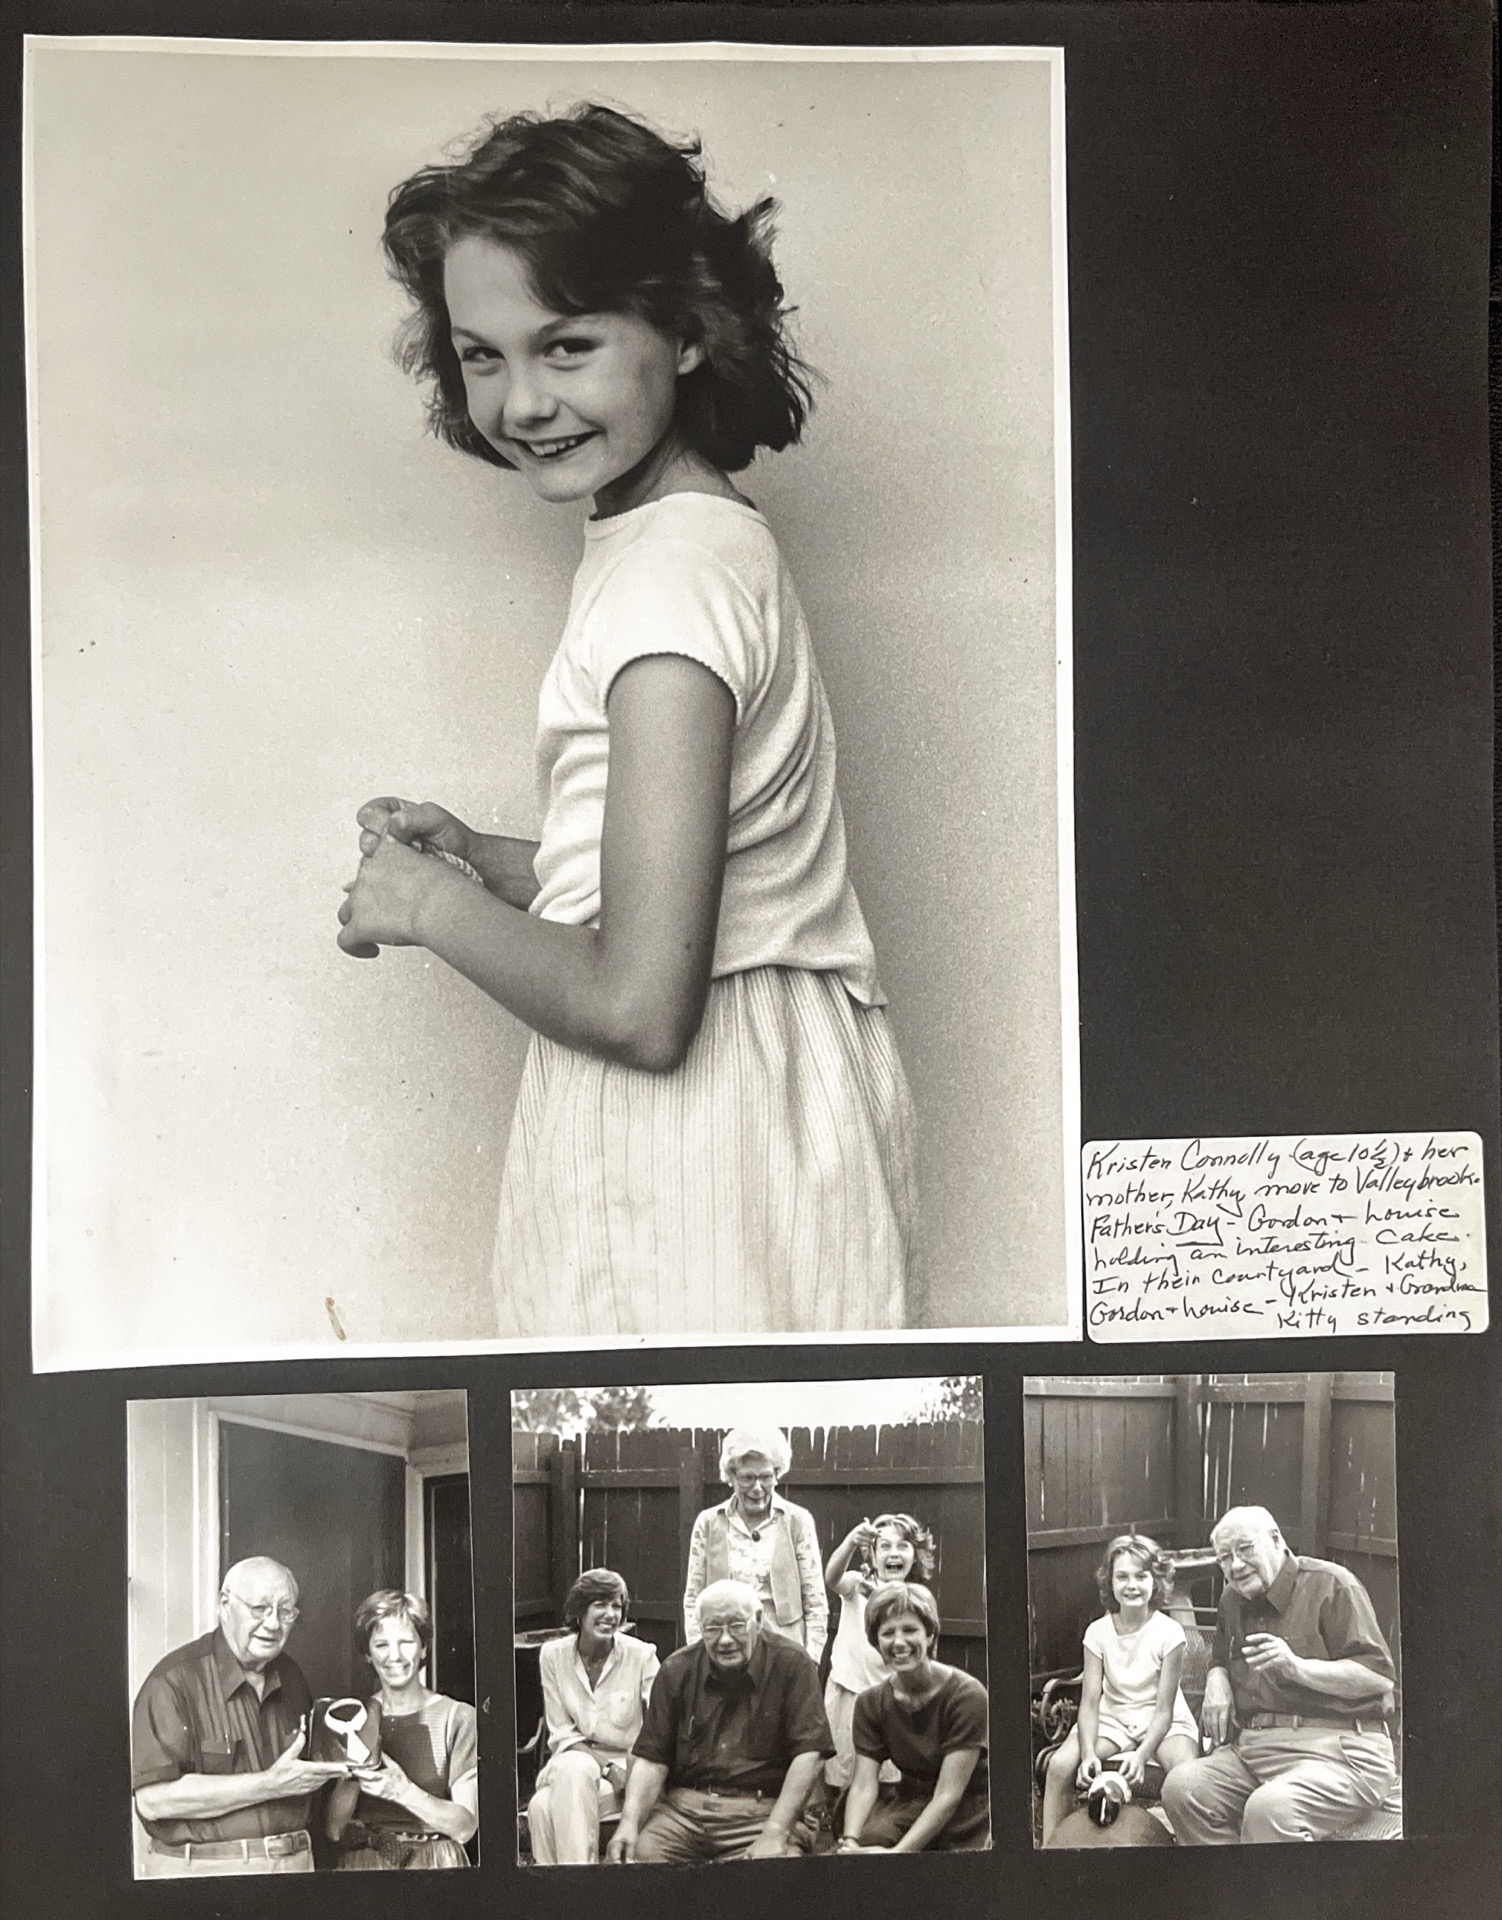 Kristen Connolly (age 10½) + her
mother, Kathy, move to Valleybrook.
Father's Day - Gordon + Louise
holding an interesting cake.
In their courtyard - Kathy,
Gordon + Louise - Kristen + Grandma
Kitty standing